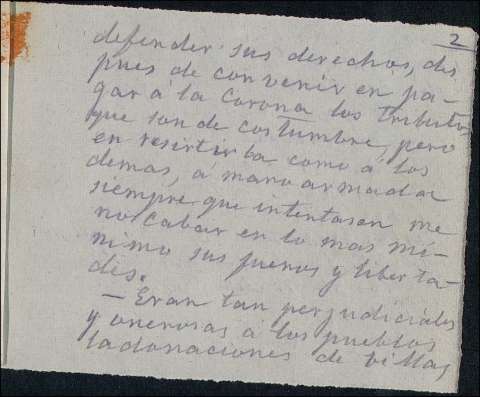 2
defender sus derechos, des
pues de convenir en pa-
gar á la Corona los tributos
que son de costumbre, pero
en resistirla como á los
demas, a mano armada
siempre que intentasen me
nocabar en lo mas mi-
nimo sus fueros y liberta-
des.
— Eran tan perjudiciales
y onerosas á los pueblos
las donaciones de villas